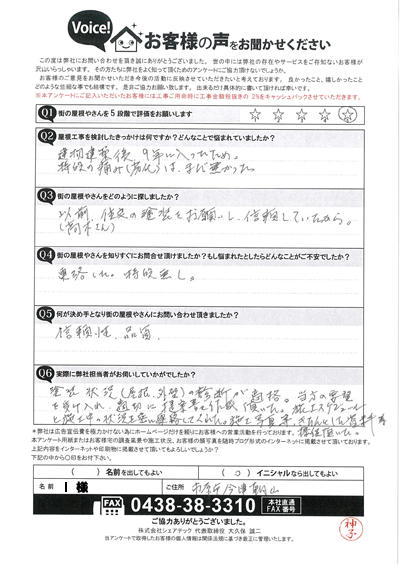 Voice!
お客様の声をお聞かせください
この度は弊社にお問い合わせを頂き誠にありがとうございました。世の中には弊社の存在やサービスをご存知ないお客様が
沢山いらっしゃいます。その方たちに弊社をよく知って頂くためのアンケートにご協力頂けないでしょうか。
お客様のご意見をお聞かせいただき今後の活動に反映させていただきたいと考えております。良かったこと、嬉しかったこと
どのような些細な事でも結構です。是非ご協力お願い致します。出来るだけ具体的に書いて頂ければ幸いです。
※本アンケートにご記入いただいたお客様には工事ご用命時に工事金額税抜きの2%をキャッシュバックさせていただきます。
Q1 街の屋根やさんを5段階で評価をお願いします ☆ ☆ ☆ ☆ ☆
Q2 屋根工事を検討したきっかけは何ですか?どんなことで悩まれていましたか?
建物建築後 9年に入ったため。
特段の痛み(劣化)は、まだ無かった。
Q3 街の屋根やさんをどのように探しましたか?
以前、住居の塗装をお願いし、信頼していたから。
Q4 街の屋根やさんを知りすぐにお問合せ頂けましたか?もし悩まれたとしたらどんなことがご不安でしたか?
連絡した。特段無し。
Q5 何が決め手となり街の屋根やさんにお問い合わせ頂きましたか?
信頼性、品質
Q6 実際に弊社担当者がお伺いしていかがでしたか?
塗装状況(屋根、外壁)の診断が適格。当方の要望
を受け入れ、適切に提案書を作成頂いた。
※弊社は広告宣伝費を極力かけない為にホームページだけを頼りにお客様への営業活動を行っております。
本アンケート用紙またはお客様宅の調査風景や施工状況、お客様の顔写真を随時ブログ形式のインターネットに掲載させて頂いております。
上記内容をインターネットや印刷物に掲載させて頂いてもよろしいでしょうか?
下記の中から○印をお付下さい。
( ) 名前を出してもよい ( ○ ) イニシャルなら出してもよい
名前 I 様 ご住所 市原市今津朝山
FAX 0438-38-3310 本社直通 FAX番号
ご協力ありがとうございました
株式会社シェアテック 代表取締役 大久保 誠二
当アンケートで取得したお客様の個人情報は関係法規に基づき厳正に管理いたします。
神子